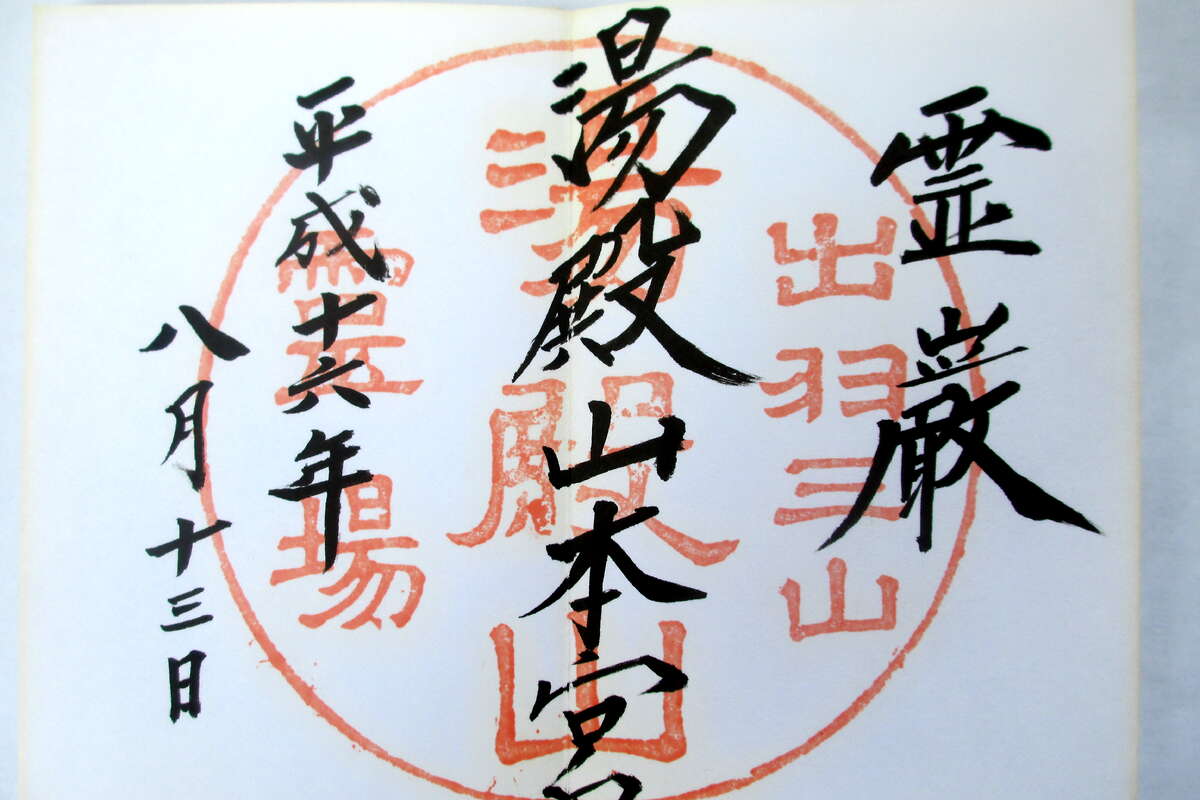 霊巌
湯殿山本宮
平成十六年
八月十三日
出羽三山
湯殿山
霊場